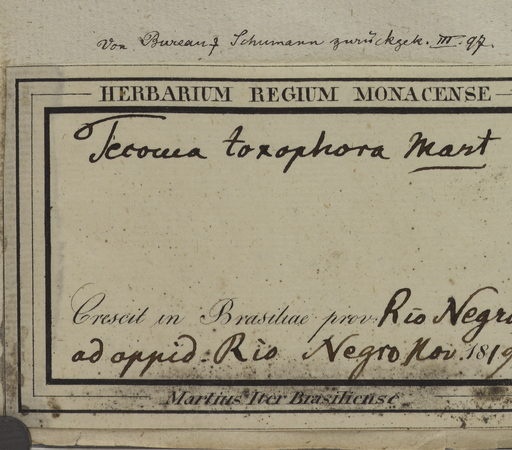 Von Bureau & Schumann zurückgek. III. 97.
HERBARIUM REGIUM MONACENSE
Tecoma toxophora Mart
Crescit in Brasiliae prov. Rio Negro
ad oppid. Rio Negro Nov. 1819
Martius Iter Brasiliense